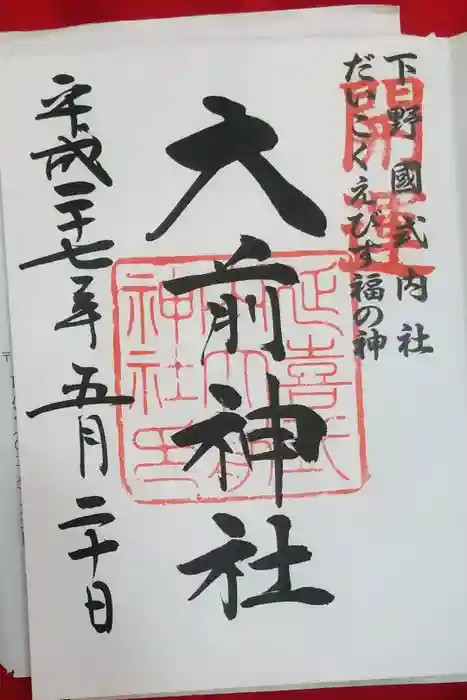 下野國式内社
だいこくえびす福の神
開運
大前神社
延喜式
内大前
神社印
平成二十七年五月二十日